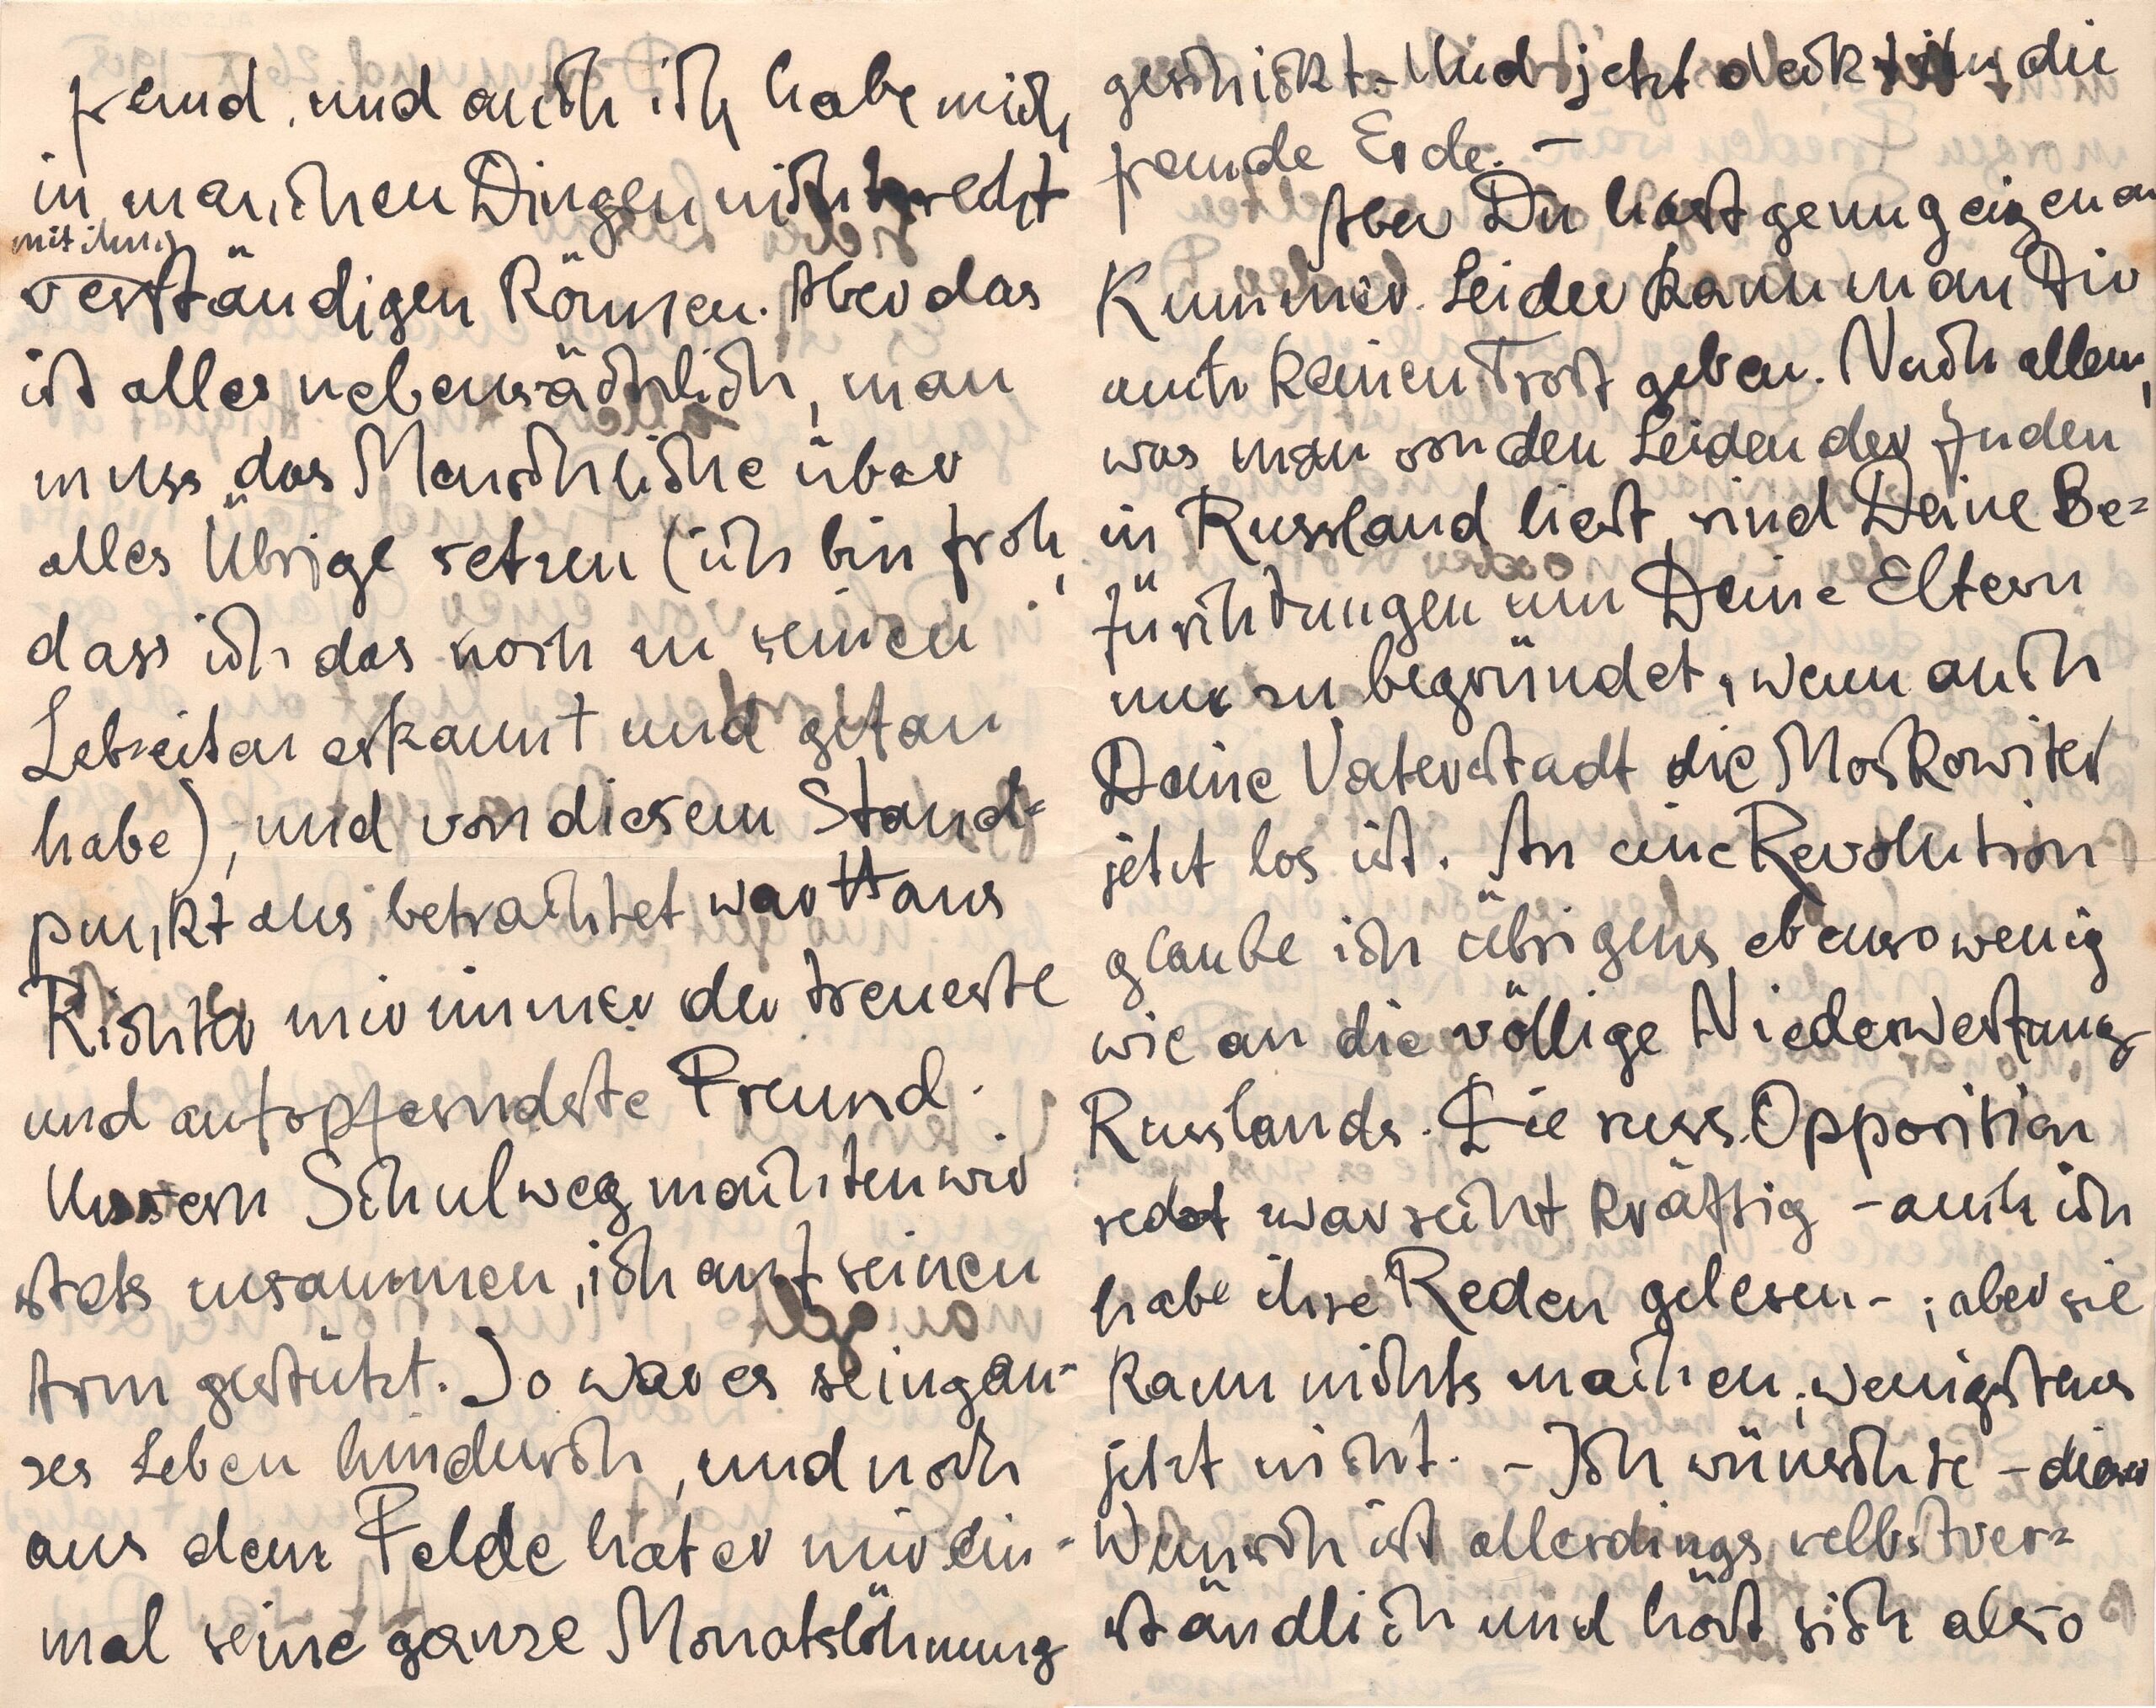 fremd, und auch ich habe mich
in manchen Dingen nicht recht
mit ihm
verständigen können. Aber das
ist alles nebensächlich, man
muss das Menschliche über
alles Übrige setzen (ich bin froh,
dass ich das noch zu seinen
Lebzeiten erkannt und getan
habe), und von diesem Stand=
punkt aus betrachtet war Hans
Richter mir immer der treueste
und aufopferndste Freund.
Unsern Schulweg machten wir
stets zusammen, ich auf seinen
Arm gestützt. So war es sein gan-
zes Leben hindurch, und noch
aus dem Felde hat er mir ein-
mal seine ganze Monatslöhnung
geschickt. - Und jetzt deckt ihn die
fremde Erde. -
Aber Du hast genug eigenen
Kummer. Leider kann man Dir
auch keinen Trost geben. Nach allem,
was man von den Leiden der Juden
in Russland liest, sind Deine Be=
fürchtungen um Deine Eltern
nur zu begründet, wenn auch
Deine Vaterstadt die Moskowiter
jetzt los ist. An eine Revolution
glaube ich übrigens ebensowenig
wie an die völlige Niederwerfung
Russlands. Die russ. Opposition
redet zwar recht kräftig - auch ich
habe ihre Reden gelesen - ; aber sie
kann nichts machen, wenigstens
jetzt nicht. - Ich wünschte - dieser
Wunsch ist allerdings selbstver=
ständlich und hört sich also